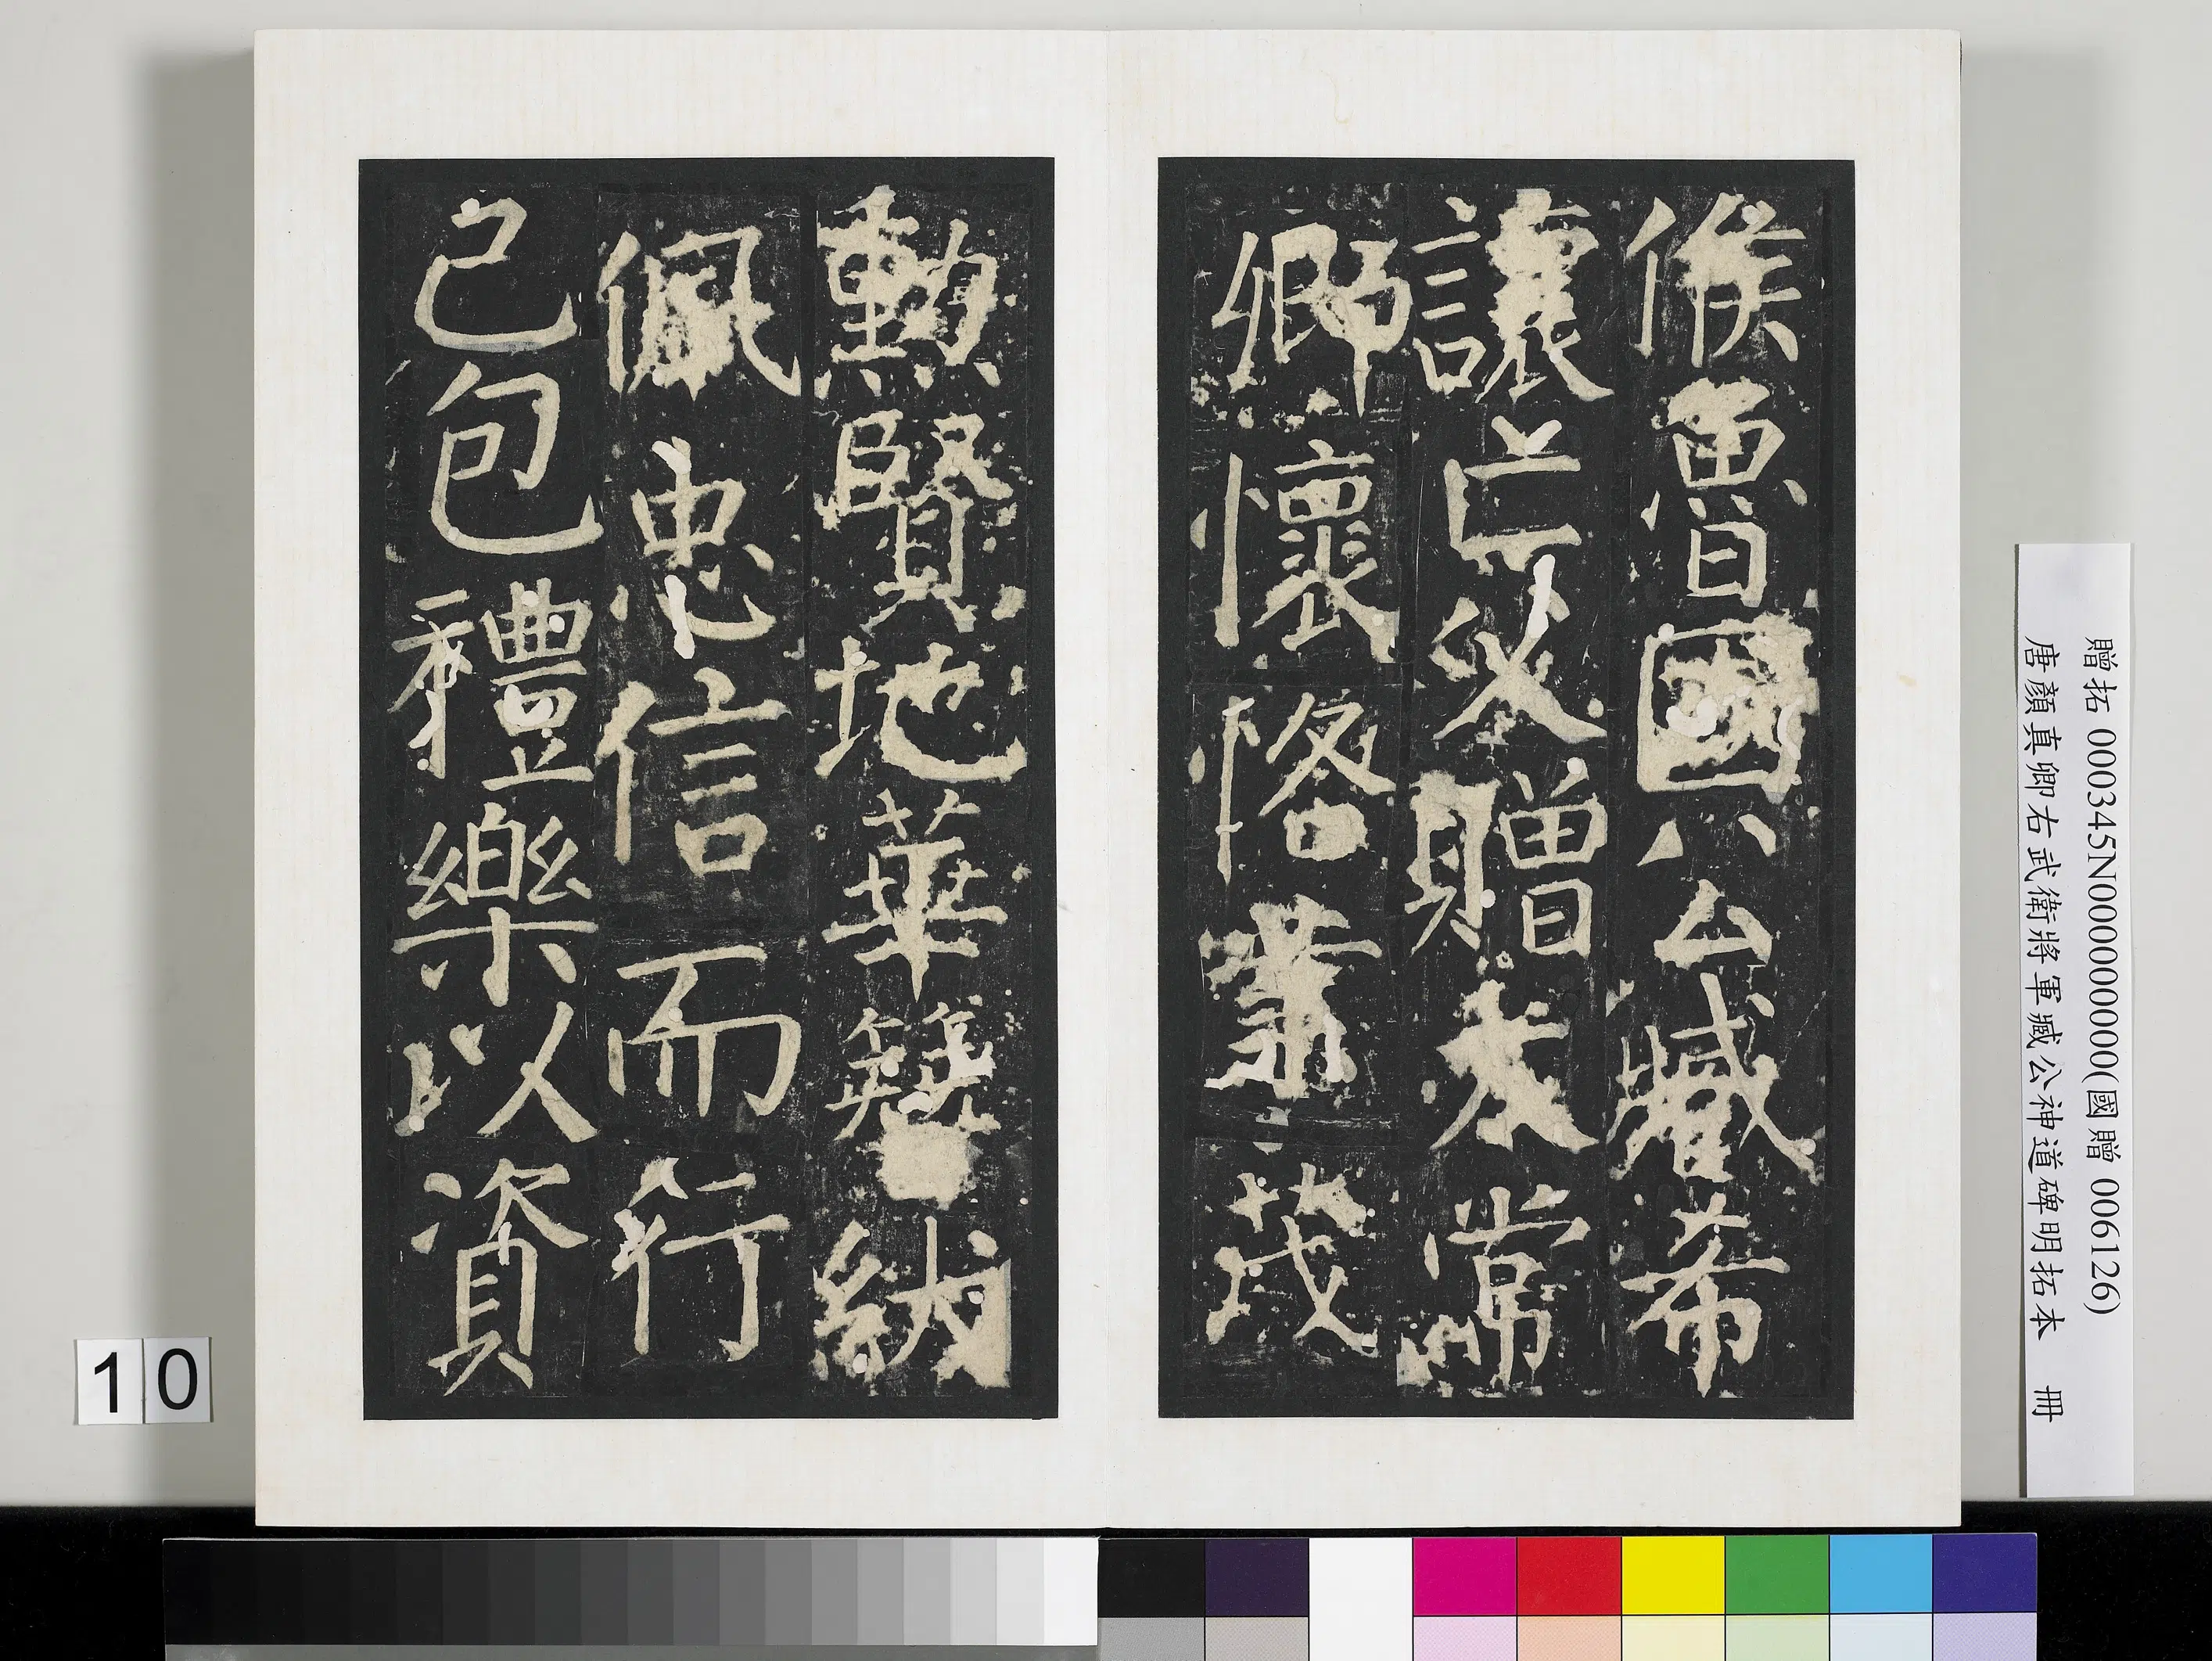 候魯國公臧希
讓亡父贈太常
卿懷恪業茂
勳賢地華簪紱
佩忠信而行
己包禮樂以資
贈拓 000345N000000000(國贈 006126)
唐顏真卿右武衛將軍臧公神道碑明拓本 冊
10